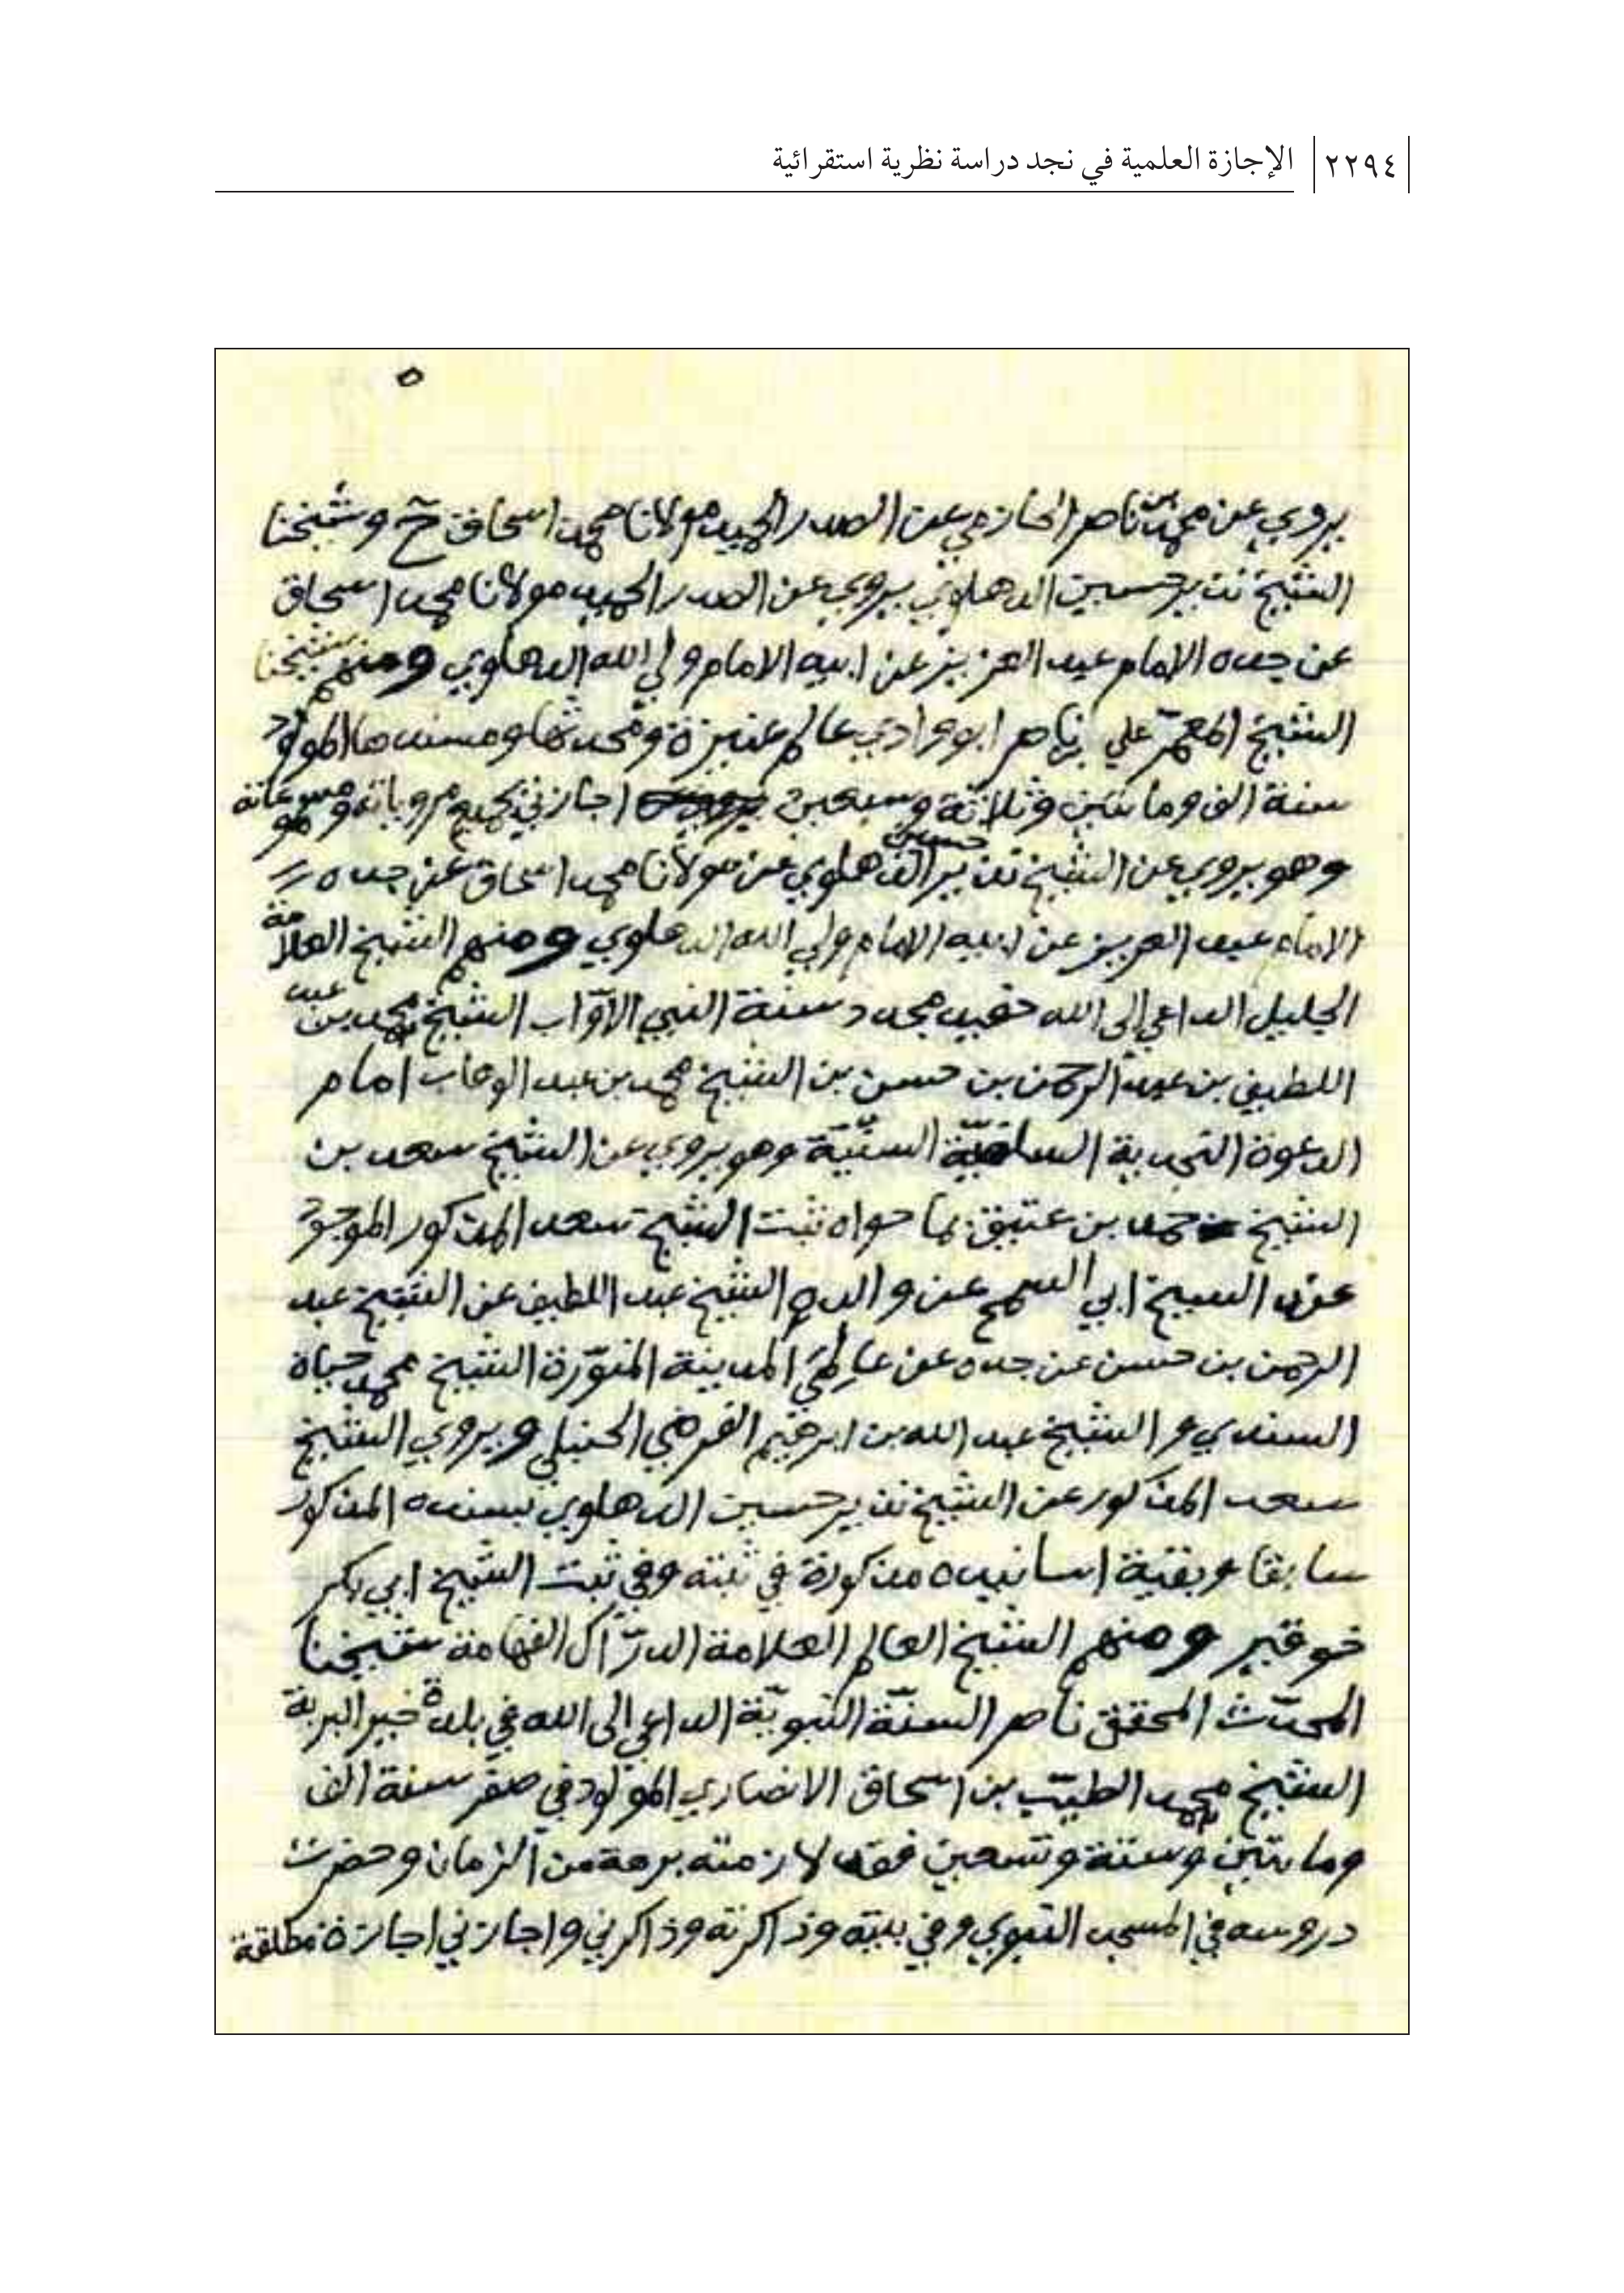 ٢٢٩٤ الإجازة العلمية في نجد دراسة نظرية استقرائية
٥
يروي عن محمد بن ناصر الحازمي عن الصدر الحميد مولانا محمد اسحاق ح وشيخنا
الشيخ نذير حسين الدهلوي يروي عن الصدر الحميد مولانا محمد اسحاق
عن جده الامام عبد العزيز عن ابيه الامام ولي الله الدهلوي ومنهم شيخنا
الشيخ المعمّر علي بن ناصر ابو وادي عالم عنيزة ومحدثها ومسندها المولود
سنة الف ومائتين وثلاثة وسبعين اجازني بجميع مروياته ومسموعاته
وهو يروي عن الشيخ نذير حسين الدهلوي عن مولانا محمد اسحاق عن جده
الامام عبد العزيز عن ابيه الامام ولي الله الدهلوي ومنهم الشيخ العلامة
الجليل الداعي الى الله حفيد مجدد سنة النبي الأوّاب الشيخ محمد بن عبد
اللطيف بن عبد الرحمن بن حسن بن الشيخ محمد بن عبد الوهاب امام
الدعوة النجدية السلفيّة السنيّة وهو يروي عن الشيخ سعد بن
الشيخ حمد بن عتيق بما حواه ثبت الشيخ سعد المذكور الموجود
عند الشيخ ابي السمح عن والده الشيخ عبد اللطيف عن الشيخ عبد
الرحمن بن حسن عن جده عن عالمي المدينة المنوّرة الشيخ محمد حياة
السندي و الشيخ عبد الله بن ابرهيم الفرضي الحنبلي ويروي الشيخ
سعد المذكور عن الشيخ نذير حسين الدهلوي بسنده المذكور
سابقا وبقية اسانيده مذكورة في ثبته وفي ثبت الشيخ ابي بكر
خوقير ومنهم الشيخ العالم العلامة الدرّاك الفهامة شيخنا
المحدّث المحقق ناصر السنّة النبويّة الداعي الى الله في بلدة خير البرية
الشيخ محمد الطيّب بن اسحاق الانصاري المولود في صفر سنة الف
ومائتين وستة وتسعين فقد لازمته برهة من الزمان وحضرت
دروسه في المسجد النبوي وفي بيته وذاكرته وذاكرني واجازني اجازة مطلقة